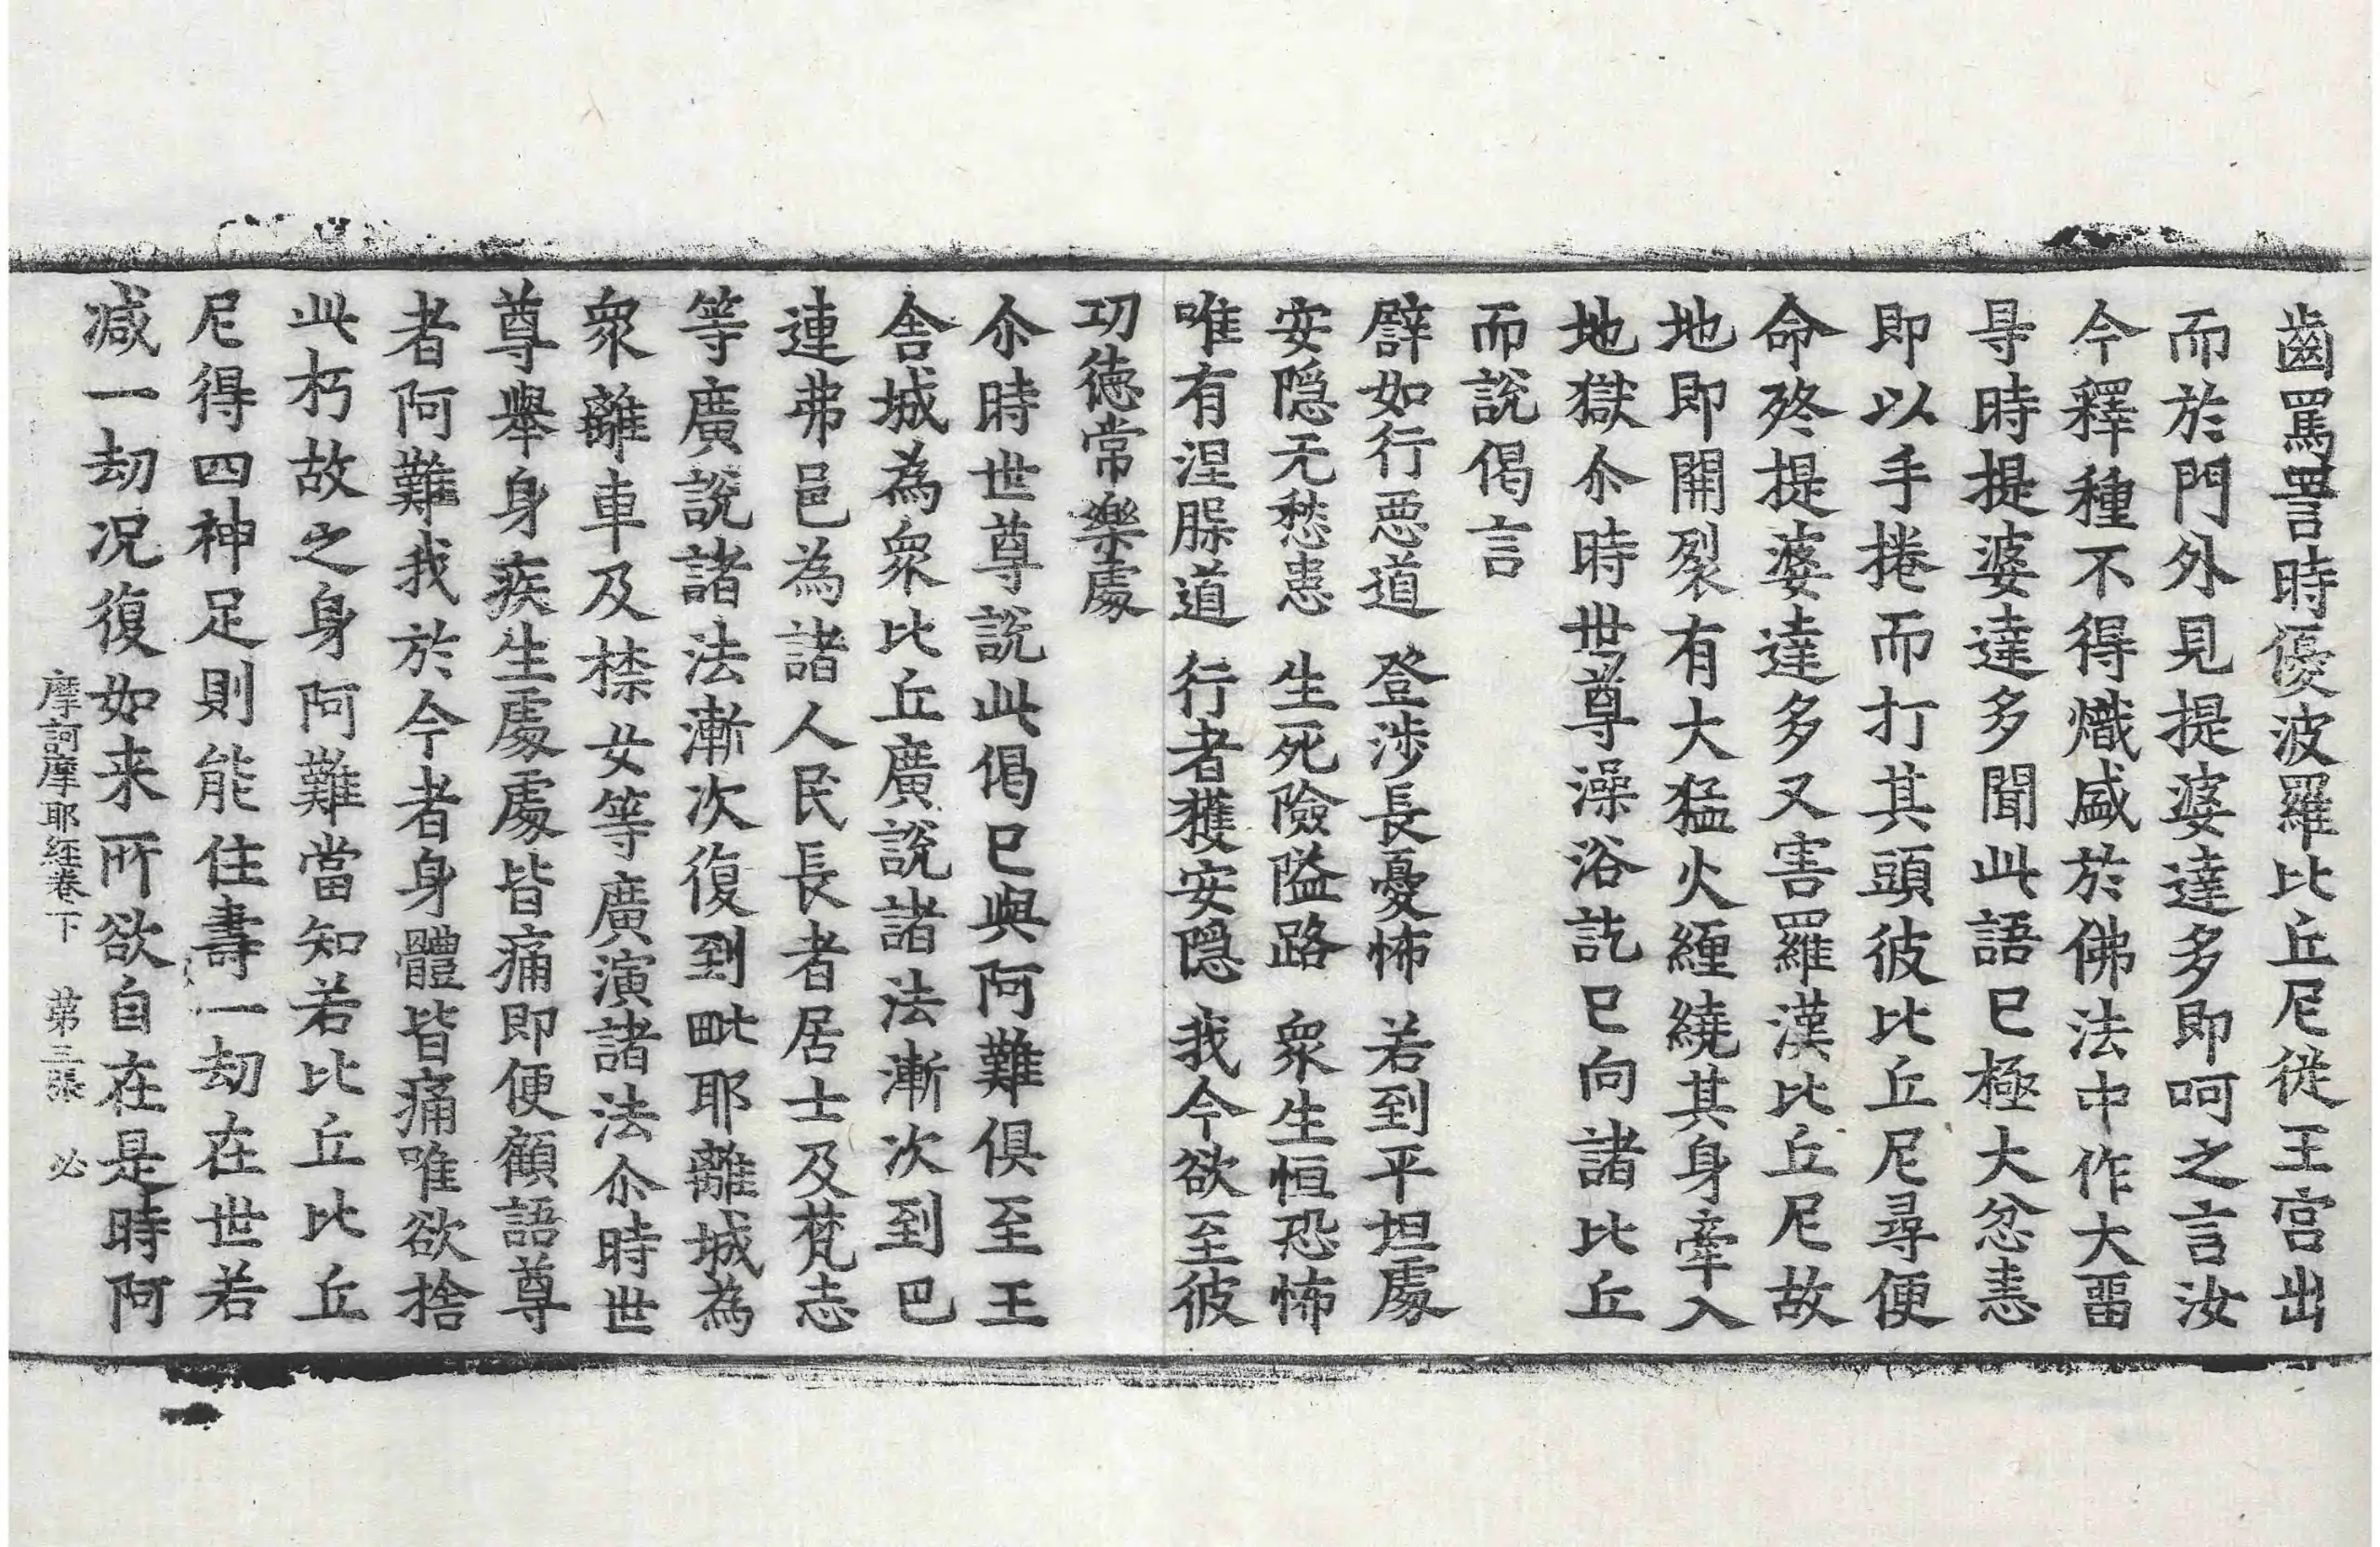 齒罵詈時優波羅比丘尼從王宮出
而於門外見提婆達多即呵之言汝
今釋種不得熾盛於佛法中作大畱
㝵時提婆達多聞此語已極大忿恚
即以手捲而打其頭彼比丘尼尋便
命終提婆達多又害羅漢比丘尼故
地即開裂有大猛火纏繞其身牽入
地獄尒時世尊澡浴訖已向諸比丘
而說偈言
譬如行惡道　登涉長憂怖　若到平坦處
安隱无愁患　生死險隘路　衆生恒恐怖
唯有涅脲道　行者獲安隱　我今欲至彼
功德常樂處
尒時世尊說此偈已與阿難俱至王
舍城為衆比丘廣說諸法漸次到巴
連弗邑為諸人民長者居士及梵志
等廣說諸法漸次復到毗耶離城為
衆離車及㮈女等廣演諸法尒時世
尊舉身疾生處處皆痛即便顧語尊
者阿難我於今者身體皆痛唯欲捨
此朽故之身阿難當知若比丘比丘
尼得四神足則能住壽一劫在世若
減一劫況復如来所欲自在是時阿
摩訶摩耶經卷下　第三張　必